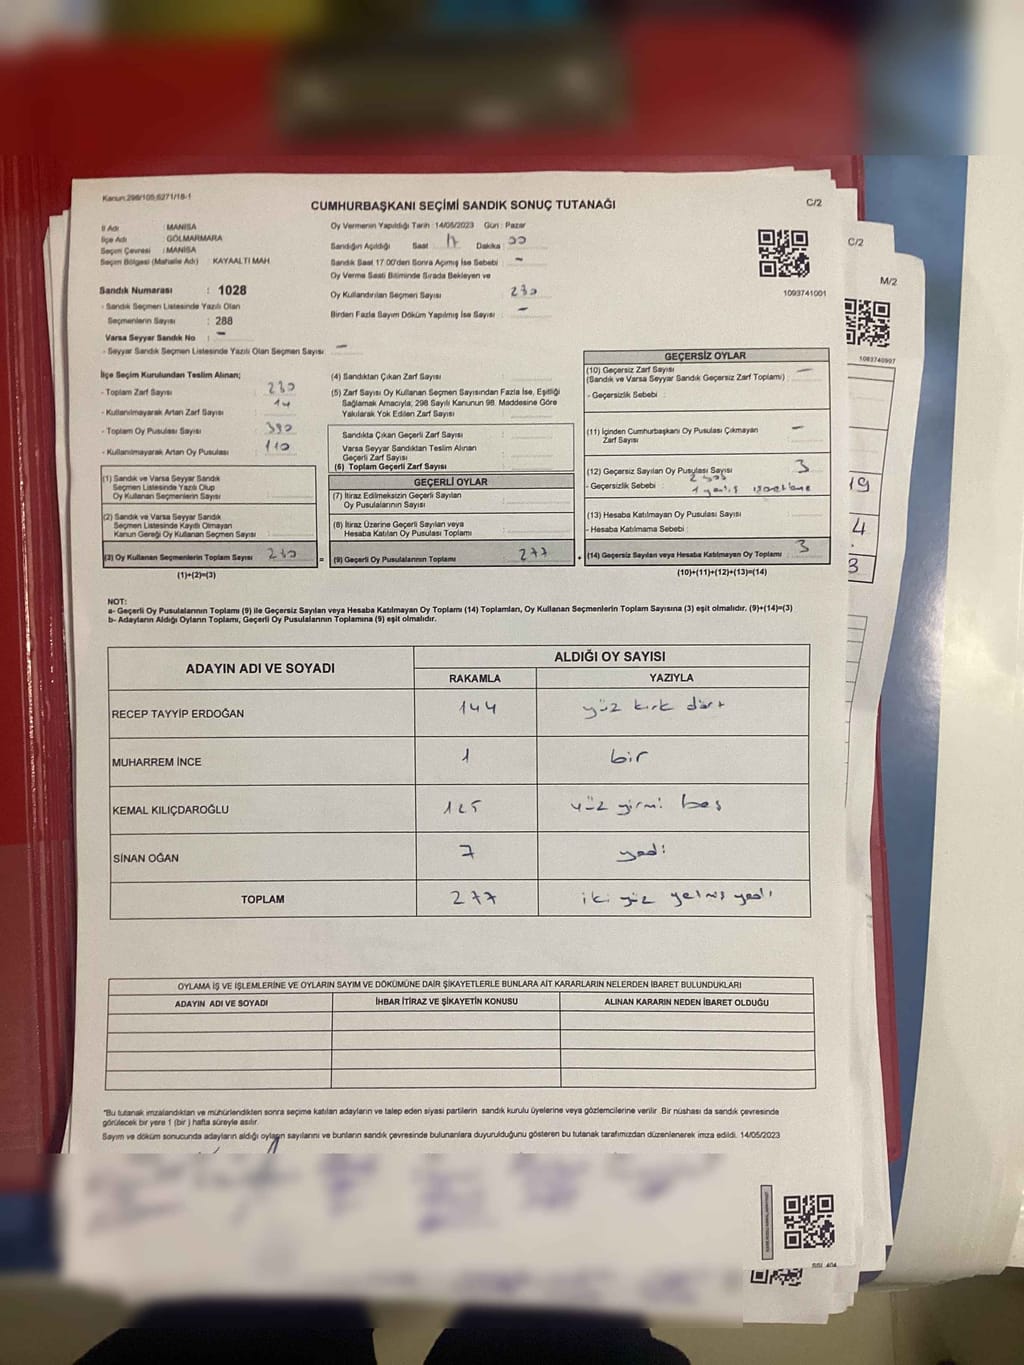 Kanun:298/105;6271/16-1
CUMHURBAŞKANI SEÇİMİ SANDIK SONUÇ TUTANAĞI
C/2
İl Adı : MANİSA
İlçe Adı : GÖLMARMARA
Seçim Çevresi : MANİSA
Seçim Bölgesi (Mahalle Adı) KAYAALTI MAH.
Oy Vermenin Yapıldığı Tarih : 14/05/2023 Gün : Pazar
Sandığın Açıldığı Saat 17 Dakika : 00
Sandık Saat 17.00'den Sonra Açılmış İse Sebebi : -
Oy Verme Saati Bitiminde Sırada Bekleyen ve
Oy Kullandırılan Seçmen Sayısı : 280
Birden Fazla Sayım Döküm Yapılmış İse Sayısı : -
1093741001
Sandık Numarası : 1028
- Sandık Seçmen Listesinde Yazılı Olan
Seçmenlerin Sayısı : 288
Varsa Seyyar Sandık No : -
- Seyyar Sandık Seçmen Listesinde Yazılı Olan Seçmen Sayısı : -
İlçe Seçim Kurulundan Teslim Alınan;
- Toplam Zarf Sayısı :
- Kullanılmayarak Artan Zarf Sayısı : 14
- Toplam Oy Pusulası Sayısı : 390
- Kullanılmayarak Artan Oy Pusulası : 110
(1) Sandık ve Varsa Seyyar Sandık
Seçmen Listesinde Yazılı Olup
Oy Kullanan Seçmenlerin Sayısı :
(2) Sandık ve Varsa Seyyar Sandık
Seçmen Listesinde Kayıtlı Olmayan
Kanun Gereği Oy Kullanan Seçmen Sayısı :
(3) Oy Kullanan Seçmenlerin Toplam Sayısı : 280
(1)+(2)=(3)
(4) Sandıktan Çıkan Zarf Sayısı :
(5) Zarf Sayısı Oy Kullanan Seçmen Sayısından Fazla İse, Eşitliği
Sağlamak Amacıyla, 298 Sayılı Kanunun 98. Maddesine Göre
Yakılarak Yok Edilen Zarf Sayısı :
Sandıkta Çıkan Geçerli Zarf Sayısı :
Varsa Seyyar Sandıktan Teslim Alınan
Geçerli Zarf Sayısı :
(6) Toplam Geçerli Zarf Sayısı :
GEÇERLİ OYLAR
(7) İtiraz Edilmeksizin Geçerli Sayılan
Oy Pusulalarının Sayısı :
(8) İtiraz Üzerine Geçerli Sayılan veya
Hesaba Katılan Oy Pusulası Toplamı :
(9) Geçerli Oy Pusulalarının Toplamı : 277
GEÇERSİZ OYLAR
(10) Geçersiz Zarf Sayısı : -
(Sandık ve Varsa Seyyar Sandık Geçersiz Zarf Toplamı)
- Geçersizlik Sebebi :
(11) İçinden Cumhurbaşkanı Oy Pusulası Çıkmayan
Zarf Sayısı : -
(12) Geçersiz Sayılan Oy Pusulası Sayısı : 3
2 boş
- Geçersizlik Sebebi : 1 yanlış işaretleme
(13) Hesaba Katılmayan Oy Pusulası Sayısı :
- Hesaba Katılmama Sebebi :
(14) Geçersiz Sayılan veya Hesaba Katılmayan Oy Toplamı : 3
(10)+(11)+(12)+(13)=(14)
NOT:
a- Geçerli Oy Pusulalarının Toplamı (9) ile Geçersiz Sayılan veya Hesaba Katılmayan Oy Toplamı (14) Toplamları, Oy Kullanan Seçmenlerin Toplam Sayısına (3) eşit olmalıdır. (9)+(14)=(3)
b- Adayların Aldığı Oyların Toplamı, Geçerli Oy Pusulalarının Toplamına (9) eşit olmalıdır.
ADAYIN ADI VE SOYADI
ALDIĞI OY SAYISI
RAKAMLA YAZIYLA
RECEP TAYYİP ERDOĞAN 144 yüz kırk dört
MUHARREM İNCE 1 bir
KEMAL KILIÇDAROĞLU 125 yüz yirmi beş
SİNAN OĞAN 7 yedi
TOPLAM 277 iki yüz yetmiş yedi
OYLAMA İŞ VE İŞLEMLERİNE VE OYLARIN SAYIM VE DÖKÜMÜNE DAİR ŞİKAYETLERLE BUNLARA AİT KARARLARIN NELERDEN İBARET BULUNDUKLARI
ADAYIN ADI VE SOYADI İHBAR İTİRAZ VE ŞİKAYETİN KONUSU ALINAN KARARIN NEDEN İBARET OLDUĞU
"Bu tutanak imzalandıktan ve mühürlendikten sonra seçime katılan adayların ve talep eden siyasi partilerin sandık kurulu üyelerine veya gözlemcilerine verilir. Bir nüshası da sandık çevresinde
görülecek bir yere 1 (bir) hafta süreyle asılır.
Sayım ve döküm sonucunda adayların aldığı oyların sayılarını ve bunların sandık çevresinde bulunanlara duyurulduğunu gösteren bu tutanak tarafımızdan düzenlenerek imza edildi. 14/05/2023
C/2
M/2
1093740997
19
4
3